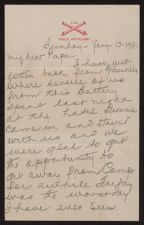 FIELD ARTILLERY
Sunday - Jan 13 - 1918
My dear Papa:
I have just
gotten back from Greenville
where several of us
from this Battery
spent last night
at the hotel
came in and stayed
with us and we
were glad to get
the opportunity to
get away from Camp
for awhile Friday
was the worst day
I have ever seen